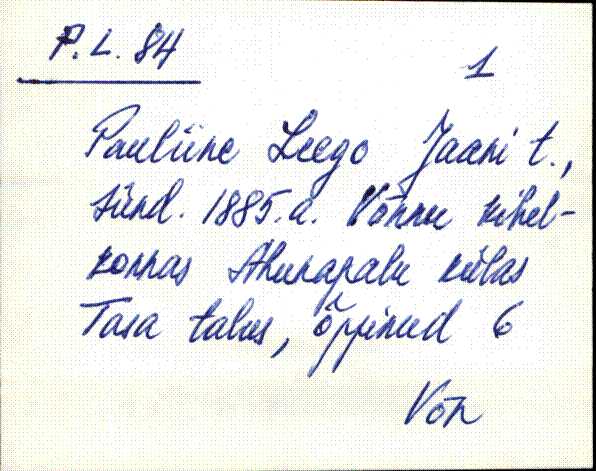 P.L. 84
1
Pauliine Leego Jaani t.,
sünd. 1885.a. Võnnu kihel-
konnas Ahunapalu külas
Tasa talus, õppinud 6
Võn